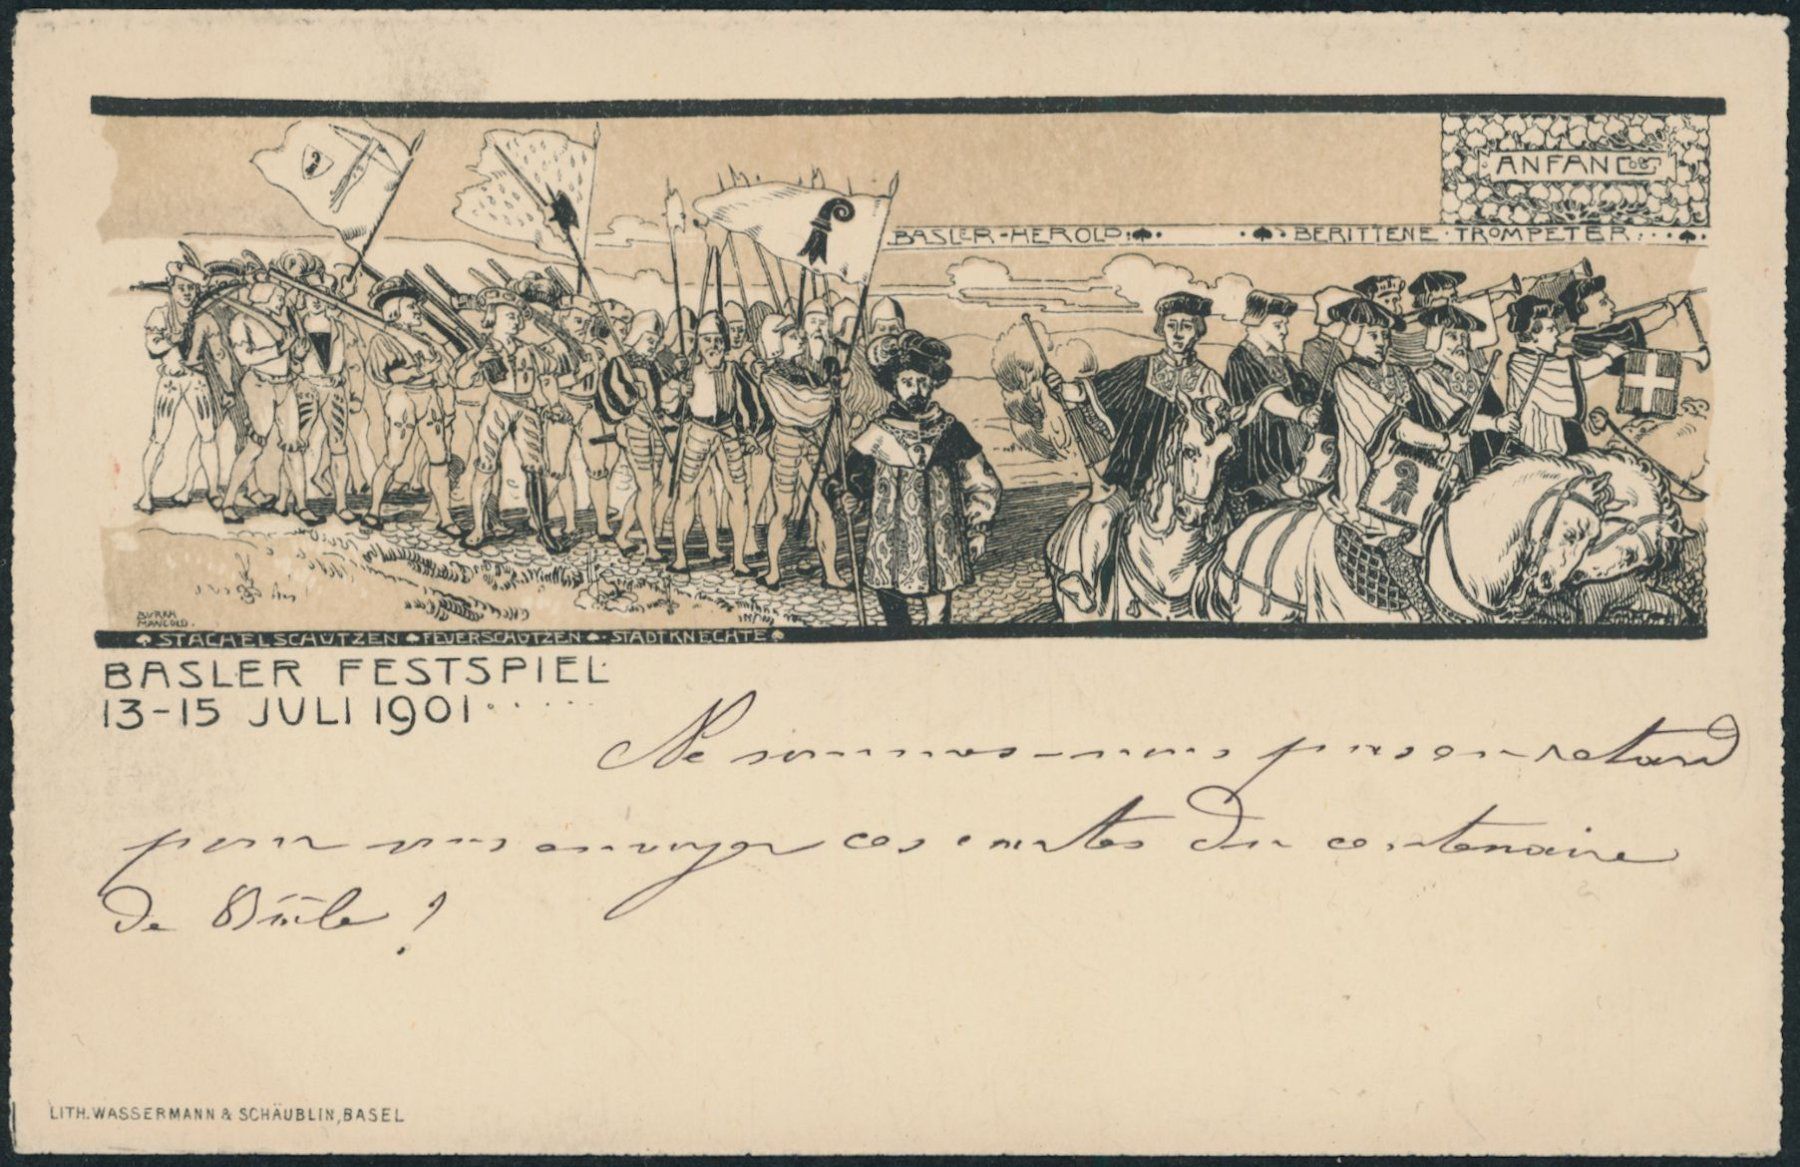 ANFANG
BASLER-HEROLD
BERITTENE · TROMPETER
BURKH
MANGOLD.
STACHELSCHÜTZEN FEUERSCHÜTZEN · STADTKNECHTE
BASLER FESTSPIEL
13-15 JULI 1901
Ne sommes-nous pas en retard
pour vous envoyer ces cartes du centenaire
de Bâle !
LITH. WASSERMANN & SCHÄUBLIN, BASEL